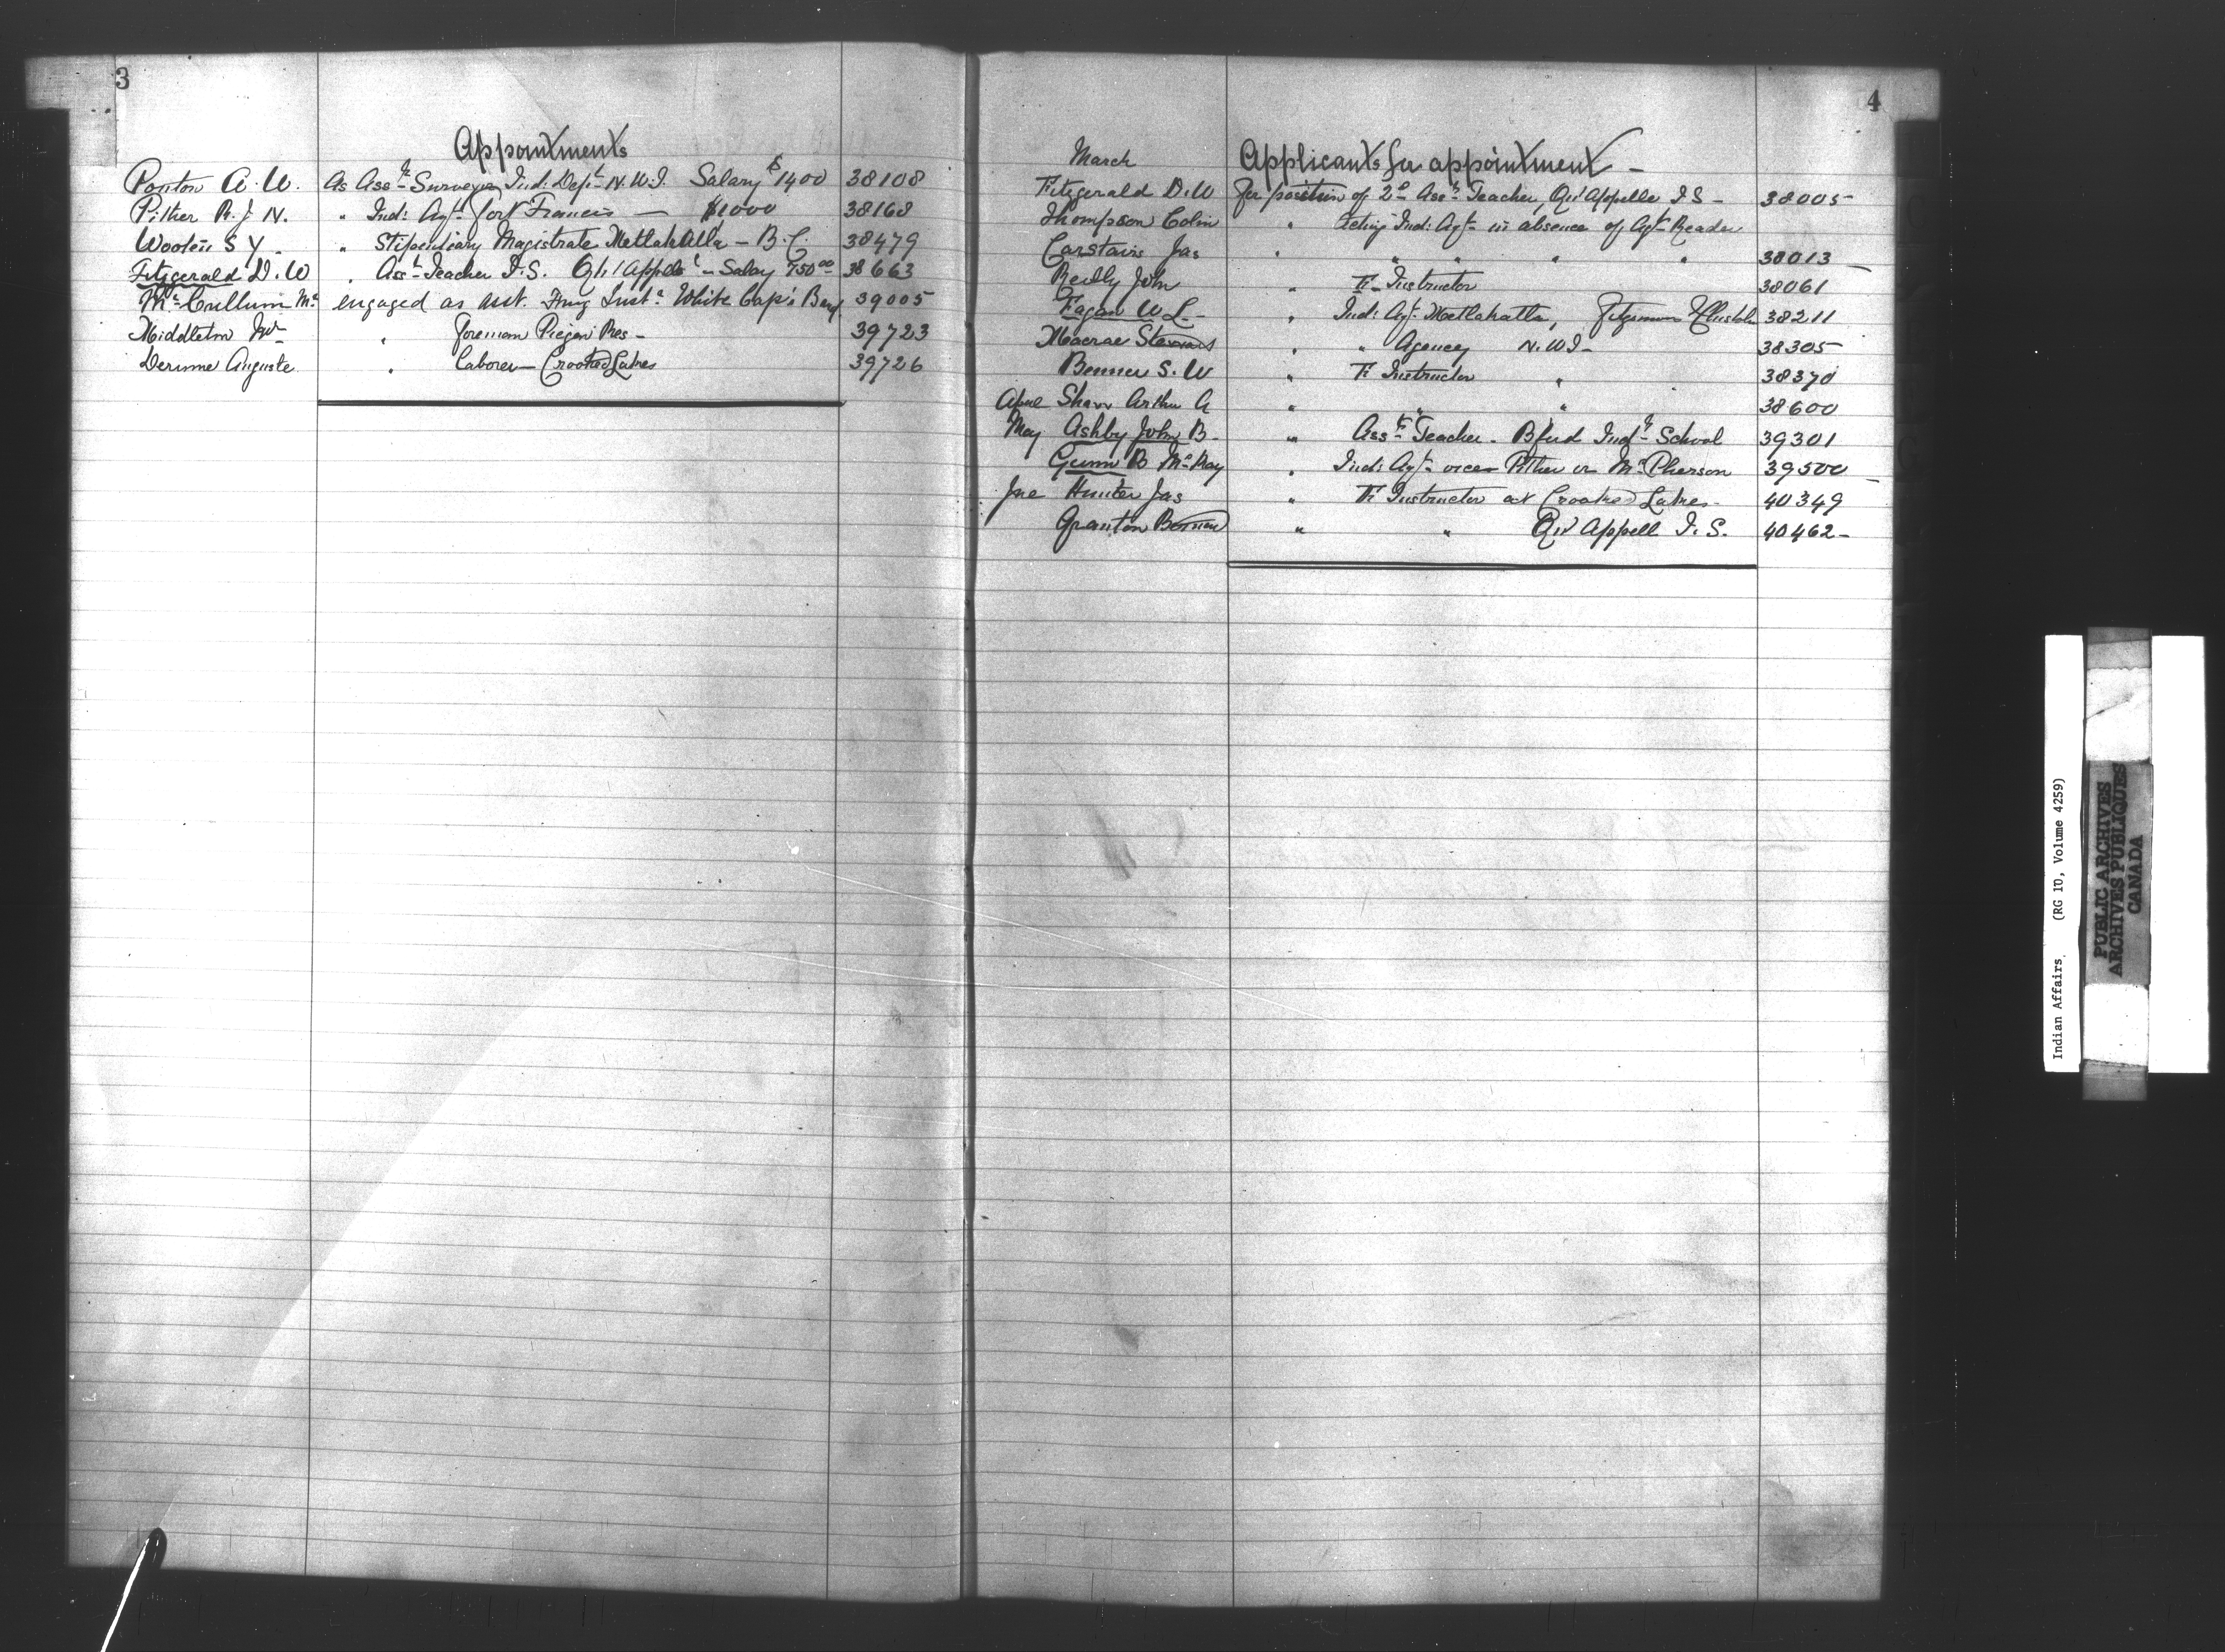 3
Appointments
Ponton A. W. As Asst Surveyor Ind: Dept N.W.T. Salary $1400 38108
Pither R. J. N. " Ind: Agt Fort Francis — $1000 38168
Wooten S Y. " Stipendiary Magistrate Metlakatla — B.C. 38479
Fitzgerald D. W " Asst Teacher I.S. Qu'Appelle — Salary 750.00 38663
McCullum engaged as asst. Fmg Instr White Cap's Band 39005
Middleton Jno " Foreman Piegan Res — 39723
Derome Auguste " Laborer — Crooked Lakes 39726
4
March Applicants for appointment —
Fitzgerald D. W for position of 2d Asst Teacher, Qu'Appelle I S — 38005
Thompson Colin " Acting Ind: Agt in absence of Agt Reader
Carstairs Jas " " " " " 38013
Reilly John " F. Instructor 38061
Fagan W L — " Ind: Agt Metlakatla, 38211
Macrae Steward " " Agency N.W.T — 38305
Bonner S. W " F. Instructor " 38370
April Shaw Arthur A " " " 38600
May Ashby John B. " Asst Teacher — Bford Indl School 39301
Gunn B McKay " Ind: Agt vice Pither or McPherson 39500
June Hunter Jas " F. Instructor at Crooked Lakes — 40349
Granton " " Qu'Appell I. S. 40462 —
Indian Affairs. (RG 10, Volume 4259)
PUBLIC ARCHIVES
ARCHIVES PUBLIQUES
CANADA